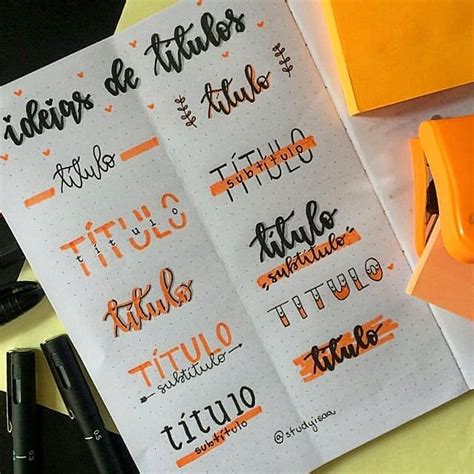 ideias de títulos
título
TÍTULO
título
título
TÍTULO
subtítulo
título
subtítulo
título
TÍTULO
subtítulo
título
"subtítulo"
TÍTULO
título
@studyisaa